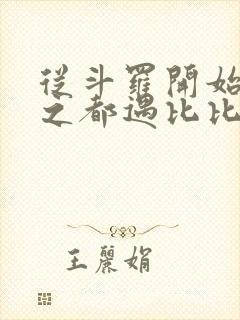 從斗羅開始
之都遇比比
王麗娟